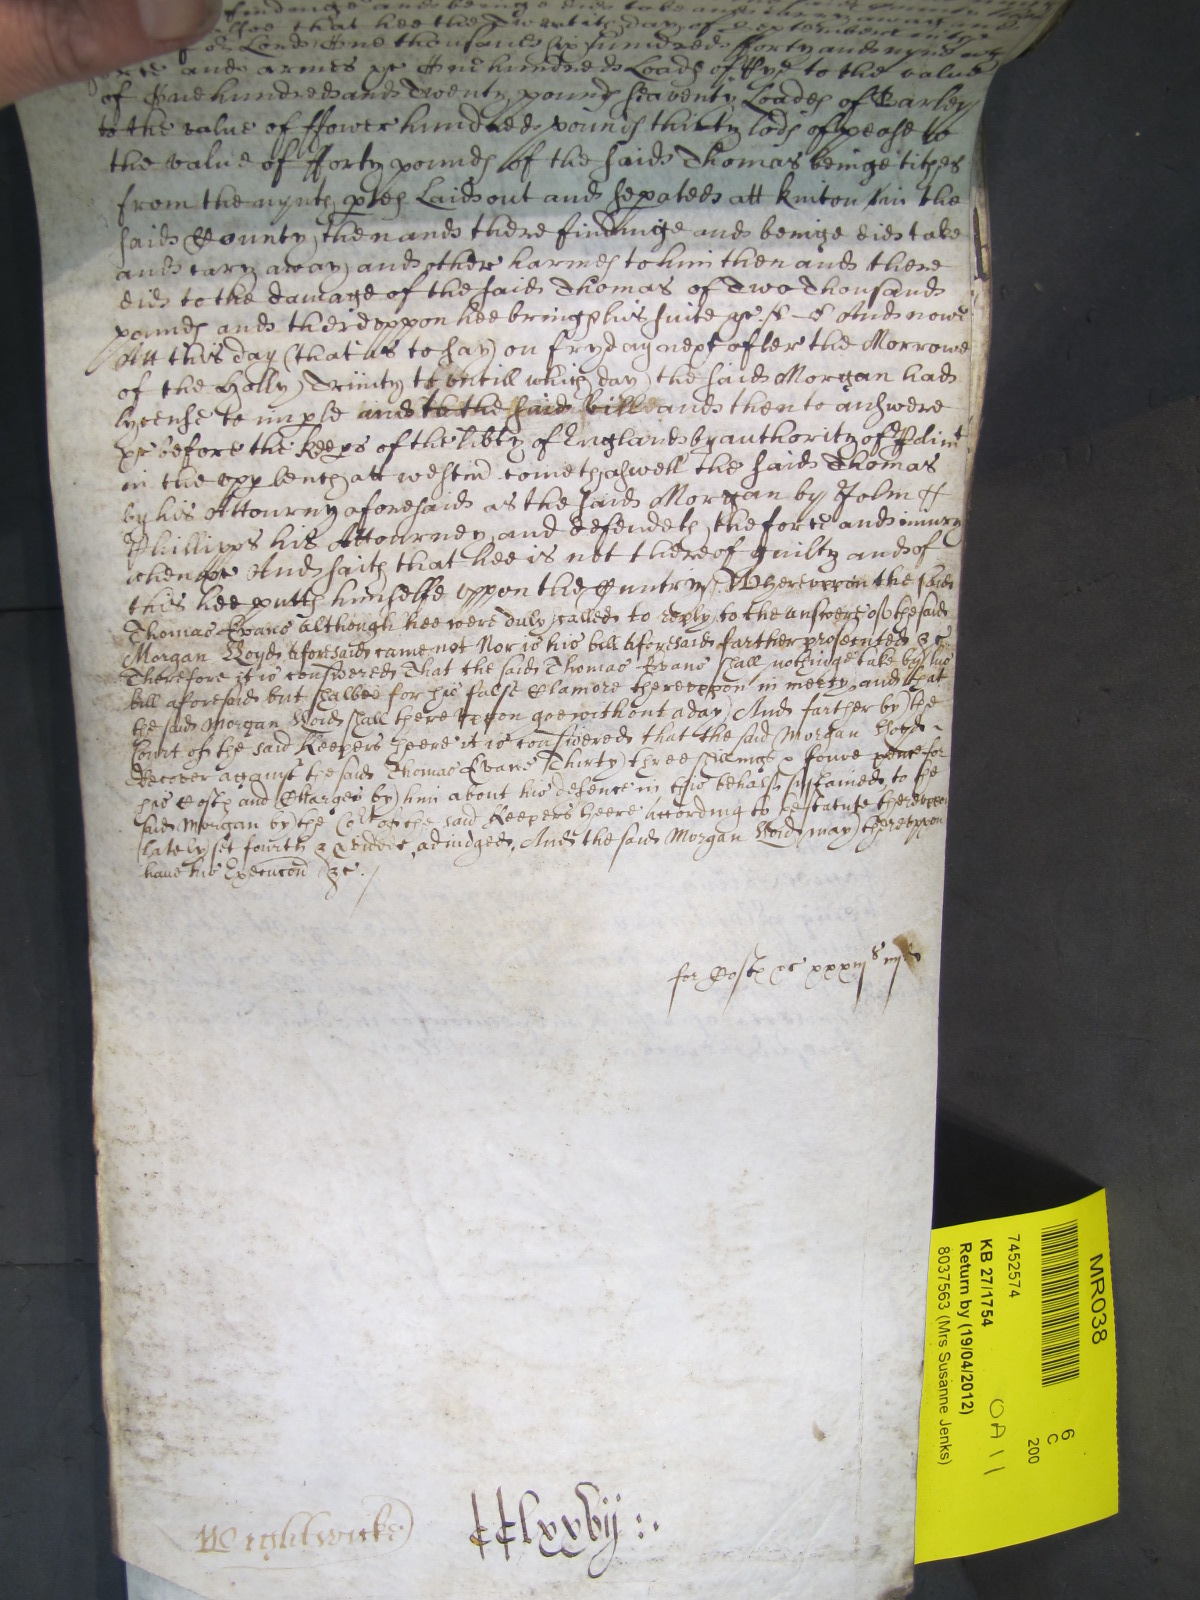 findinge and beinge did take and carry away and
hee that hee the Twentith day of September in the
of Lord One thousand six hundred forty and nyne with
force and armes &c One hundred Loads of Rye to the value
of One hundred and Twenty pounds seaventy Loades of Barley
to the value of ffower hundred pounds thirty lods of pease to
the value of fforty pounds of the said Thomas beinge tithes
from the nynth ptes Laid out and sepated att kniton in the
said County then and there findinge and beinge did take
and cary away and other harmes to him then and there
did to the damage of the said Thomas of Two Thousand
pounds and thereuppon hee brings his suite &c And nowe
Att this day (that is to say) on fryday next after the Morrowe
of the Holly Trinity untill which day the said Morgan had
lycense to imple and to the said bill and then to answere
&c before the keeps of the libty of England by authority of Parliamt
in the upp bench att westm cometh aswell the said Thomas
by his Attourny aforesaid as the said Morgan by John
Phillipps his Attourney and defendeth the force and iniury
when &c And saith that hee is not thereof guilty and of
this hee putts himselfe uppon the Cuntry &c Whereuppon the said
Thomas Evans although hee were duly called to reply to the answere of the said
Morgan Lloyd aforesaid came not Nor is his bill aforesaid farther prosecuted &c
Therefore it is considered That the said Thomas Evans shall nothinge take by his
bill aforesaid but shalbee for his false Clamore thereuppon in mercy and that
the said Morgan Lloid shall thereuppon goe without a day And farther by the
Court of the said Keepers heere it is considered that the said Morgan Lloyd
Recover against the said Thomas Evans Thirty three shillings & foure pence for
his Costs and Charges by him about his defence in this behalfe sustained to the
said Morgan by the Cort of the said Keepers heere According to the statute thereuppon
lately set fourth & adiudged And the said Morgan Lloid may thereuppon
have his Execucon &c
for Costs &c xxxiijs iiijd
Weightwicke
CClxxvij
MR038
6
C
200
7452574
KB 27/1754
OA11
Return by (19/04/2012)
8037563 (Mrs Susanne Jenks)